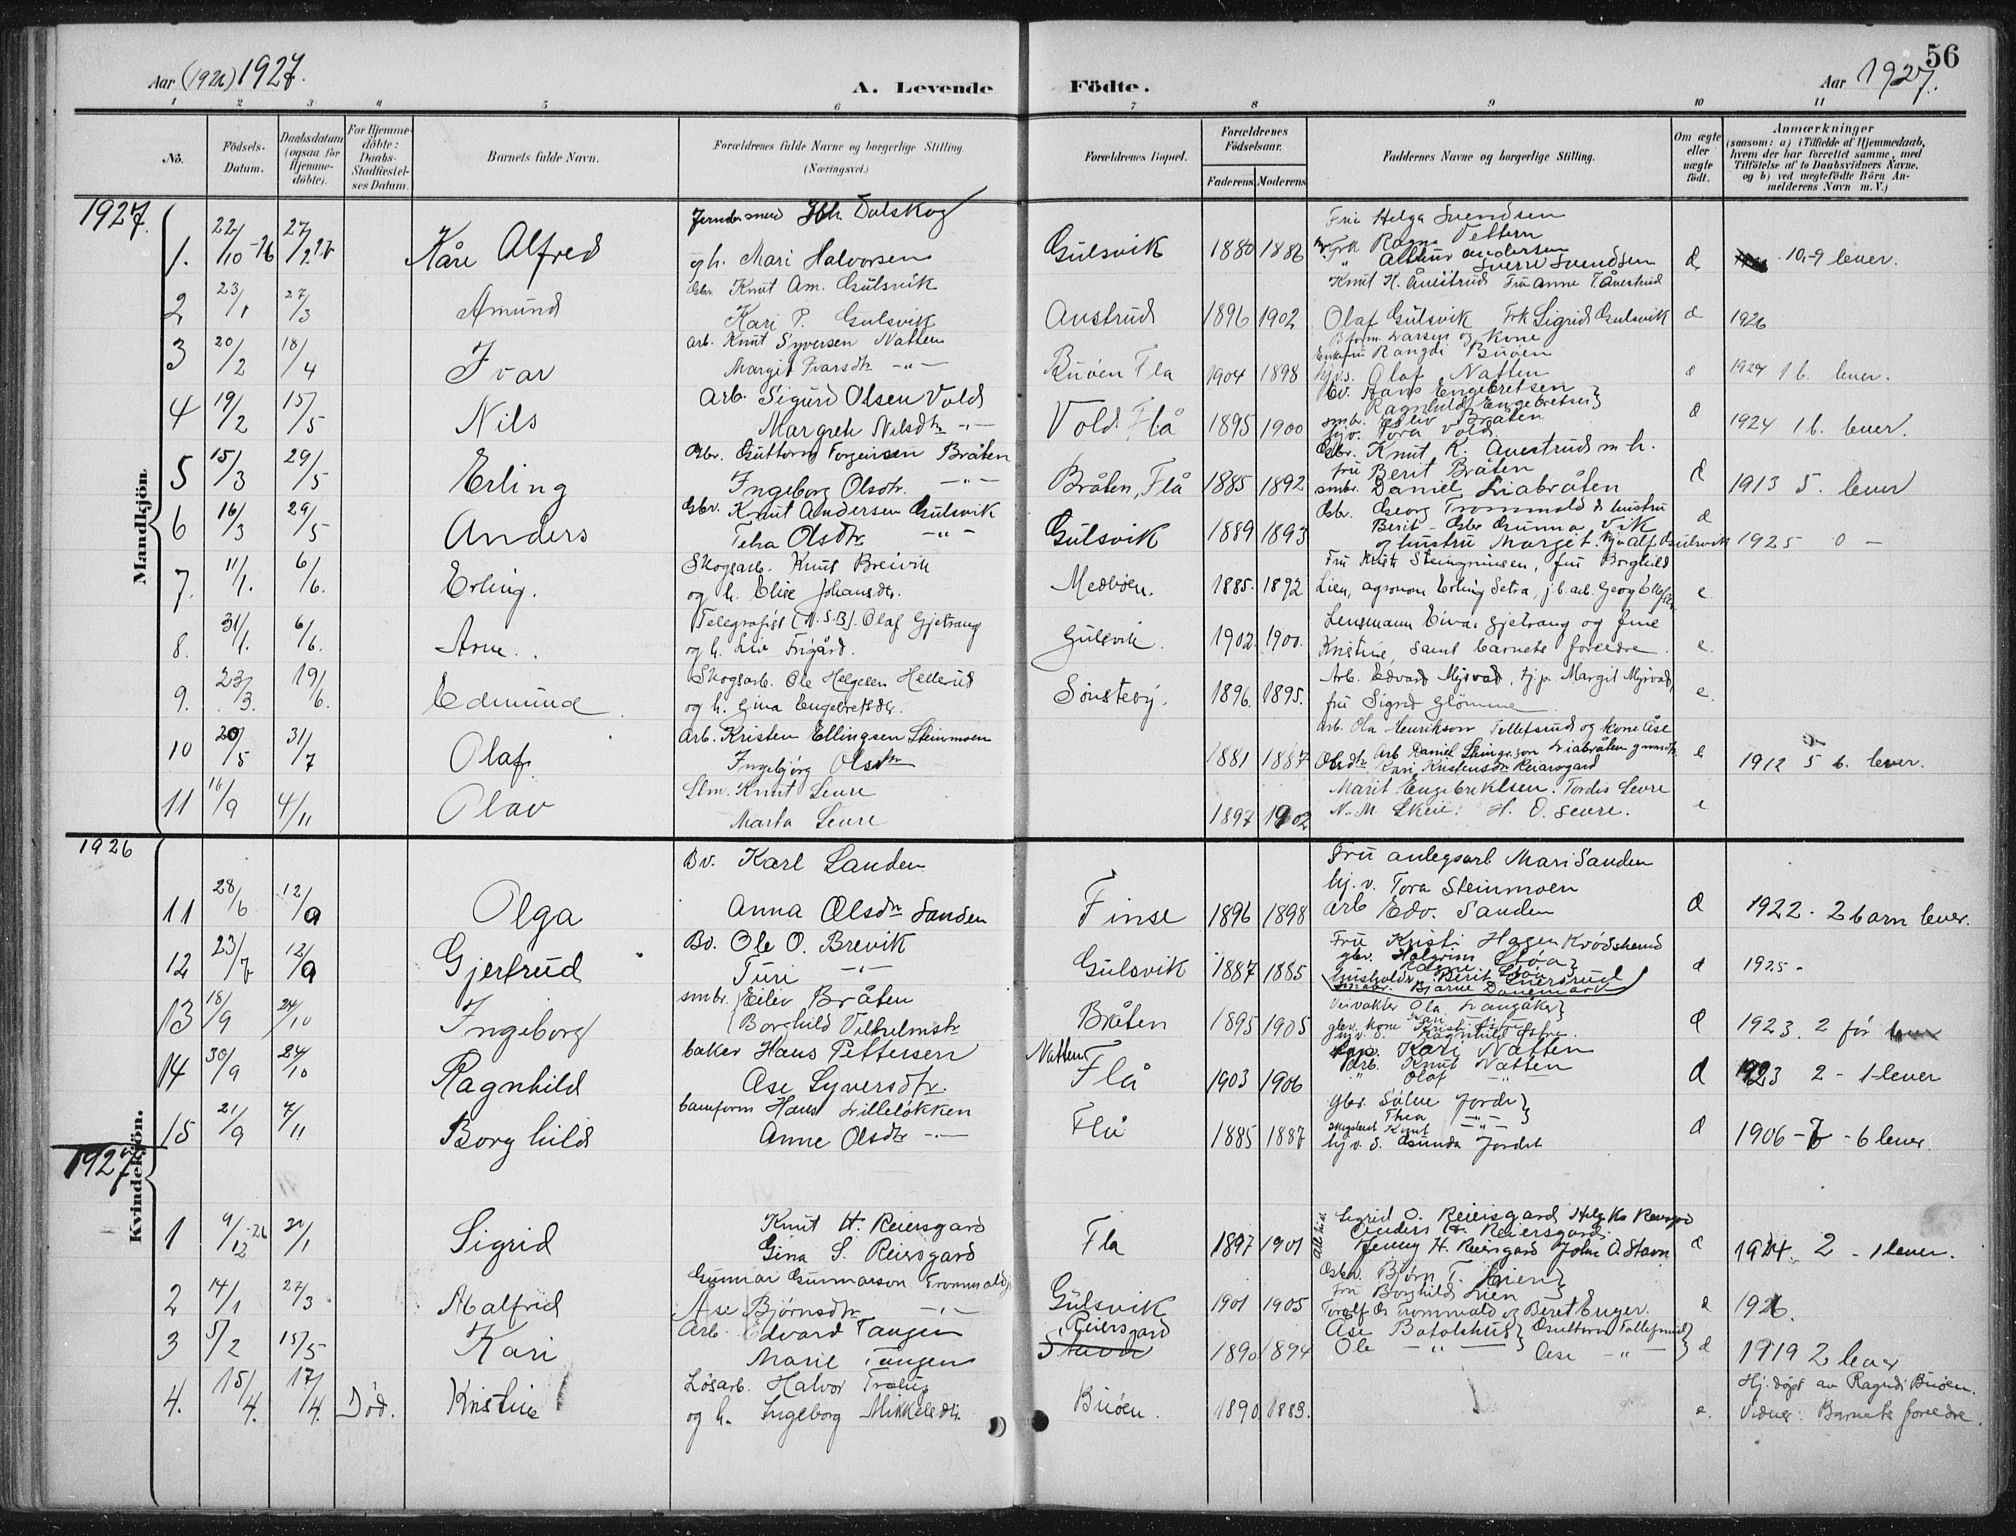 56
Aar (1926) 1927. A. Levende Födte. Aar 1927.
1 2 3 4 5 6 7 8 9 10 11
No. Födsels-Datum. Daabsdatum (ogsaa for Hjemme-döbte). For Hjemme-döbte: Daabs-Stadfæstel-ses Datum. Barnets fulde Navn. Forældrenes fulde Navne og borgerlige Stilling. (Næringsvei.) Forældrenes Bopæl. Forældrenes Födselsaar. Faderens Moderens Faddernes Navne og borgerlige Stilling. Om ægte eller uægte födt. Anmærkninger (saasom: a) i Tilfælde af Hjemmedaab, hvem der har forrettet samme, med Tilföielse af to Daabsvidners Navne, og b) ved uægtefödte Börn An-melderens Navn m. V.)
1927.
Mandkjön
1. 22/10-26 27/2 27 Kåre Alfred Joh Dalskog
og h. Mari Halvorsen Gulsvik 1880 1886
Fru Helga Svendsen
Frk Ragna Vettern
" Arthur Andersen
Sverre Svendsen
d 10-9 lever.
2 23/1 27/3 Amund Gbr Knut Am. Gulsvik
Kari P. Gulsvik Austrud 1896 1902
Knut H. Åvestrud Fru Anne T. Åvestrud
Olaf Gulsvik Frk Sigrid Gulsvik d 1926
3 20/2 18/4 Ivar arb. Knut Syversen Natten
Margit Ivarsdtr -"- Buöen Fla 1904 1898
B.form. Larsen og kone
Enkefru Rangdi Buöen
hjv.s. Olaf Natten
e 1924 1 b. lever.
4 19/2 15/5 Nils Arb. Sigurd Olsen Vold
Margreth Nilsdtr -"- Vold Flå 1895 1900
Hans Engebretsen
Ragnhild Engebretsen
smbr. Eiliv Bråten
hjv. Tora Vold.
d 1924 1 b. lever.
5 15/3 29/5 Erling Gbr. Guttorm Torgeirsen Bråten
Ingeborg Olsdtr. -"- Bråten, Flå 1885 1892
Gbr. Knut K. Auestrud m h.
fru Berit Bråten
smbr. Daniel Liabråten
d 1913 5. lever
6 16/3 29/5 Anders Gbr. Knut Andersen Gulsvik
Telia Olsdtr. -"- Gulsvik 1889 1893
Gbr. Georg Trommald & hustru
Berit - Gbr Gunna Vik
og hustru Margit. Alf Gulsvik
d 1925 0 -
7. 11/1. 6/6. Erling. Skogsarb. Knut Breivik
og h. Elise Johansdtr. Medböen. 1885. 1892
Fru Kristi Steingrimsen, fru Borghild
Lien, agronom Erling Setra, j.b.arb. Georg
e.
8. 31/1. 6/6. Arne. Telegrafist (N.S.B). Olaf Gjetrang
og h. Liv Frigård. Gulsvik. 1902. 1900.
Lensmann Einar Gjetrang og frue
Kristine, samt barnets foreldre
e.
9. 23/3. 19/6. Edmund Skogsarb. Ole Helgesen Hellerud
og h. Gina Engebretsdtr. Sönsteby. 1896. 1895.
Arb. Edvard Myrvad, tj.p. Margit Myrvad,
fru Sigrid Glömme
e.
10 20/5 31/7 Olaf arb. Kristen Ellingsen Steinmoen
Ingebjörg Olsdtr 1881 1887
arb. Ola Henriksen Tollefsrud og kone Åse
Olsdtr. Arb Daniel Steingr.son Liabråten
Kari Kristensdtr Reiarsgard
e 1912 5 b. lever.
11 16/9 4/11 Olav Slm. Knut Sevre
Marta Sevre 1897 1902
Marit Engebrektsen. Tordis Sevre
N. M. Skeie. H. O. Sevre.
e
1926
Kvindekjön.
11 28/6 12/9 Olga Bv. Karl Sanden
Anna Olsdtr Sanden Finse 1896 1898
Fru anlegsarb Mari Sanden
hj. v. Tora Steinmoen
arb Edv. Sanden
d 1922 - 2 barn lever.
12 23/7 12/9 Gjertrud Bv. Ole O. Brevik
Turi -"- Gulsvik 1887 1885
Fru Kristi Hagen Krödsherad
gbr. Halgrim Støa
Berit Enersrud
Bjarne Danemard
d 1925 -
13 18/9 24/10 Ingeborg smbr. Eiliv Bråten
Borghild Vilhelmsdtr Bråten 1895 1905
Veivakter Ola Langåker
Kari
d 1923. 2 før
14 30/9 24/10 Ragnhild baker Hans Pettersen
Ase Syversdtr. Natten Flå 1903 1906
Kari Natten
arb. Knut Natten
" Olaf -"-
d 1923 2 - 1 lever
15 21/9 7/11 Borghild banform Hans Lilleløkken
Anne Olsdtr -"- Flå 1885 1887
gbr. Sölve Jordet
Thea -"-
Knut -"-
hj v. s. Gunda Jordet
d 1906 - 7 - 6 lever.
1927
1 9/12-26 2/1 Sigrid Knut H. Reiersgard
Gina S. Reiersgard Fla 1897 1901
Sigrid O. Reiersgard Helg Ko Reiersgard
Anders H. Reiersgard.
Jenny H. Reiersgard John O. Stavn
d 1924. 2 - 1 lever.
2 14/1 27/3 Malfrid Gunnar Gunnarson Trommald
Ase Björnsdtr. -"- Gulsvik 1901 1905
Gbr. Bjørn T. Lien
Fru Borghild Lien
Toralf G. Trommald og Beret Enger.
d 1926.
3 5/2 15/5 Kari Arb. Edvard Tangen
Marie Tangen Reiersgard Stavn 1890 1894
Ase Batalshus Guttorm Tollefsrud
Ole -"- Ase -"-
d 1919 2 lever
4. 15/4. 17/4. Död. Kristine Lösarb. Halvor Trælup
og h. Ingeborg Mikkelsdtr. Buöen. 1890 1883.
e. Hj.döpt av Ragndi Buöen.
Vidner: Barnets foreldre.